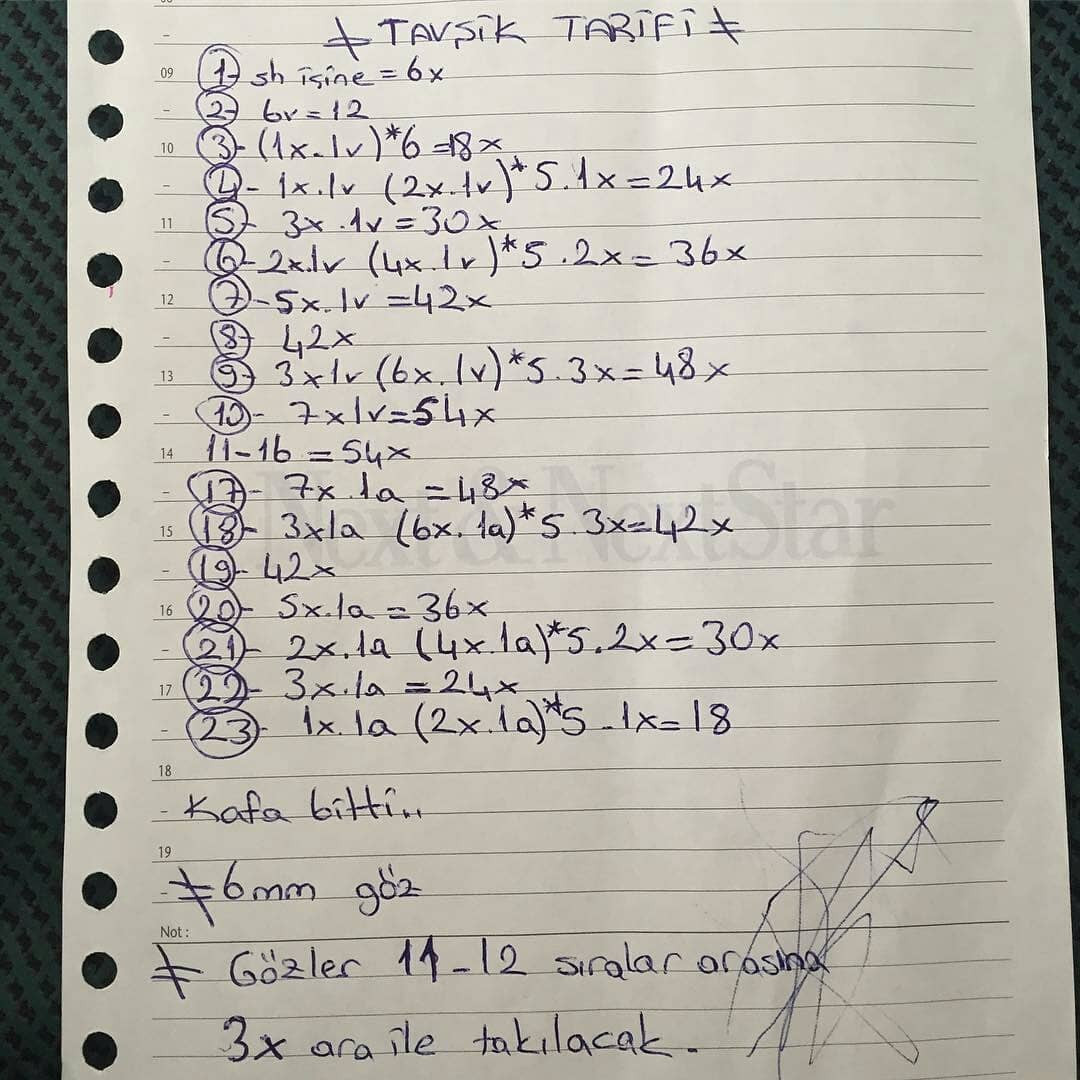 ⵜ TAVŞİK TARİFİ ⵜ
09 1- sh işine = 6x
2- 6v = 12
10 3- (1x.1v)*6 = 18x
4- 1x.1v (2x.1v)*5.1x = 24x
11 5- 3x.1v = 30x
6- 2x.1v (4x.1v)*5.2x = 36x
12 7- 5x.1v = 42x
8- 42x
13 9- 3x1v (6x.1v)*5.3x = 48x
10- 7x1v = 54x
14 11-16 = 54x
17- 7x.1a = 48x
15 18- 3x1a (6x.1a)*5.3x = 42x
19- 42x
16 20- 5x.1a = 36x
21- 2x.1a (4x.1a)*5.2x = 30x
17 22- 3x.1a = 24x
23- 1x.1a (2x.1a)*5-1x = 18
18
Kafa bitti..
19
6mm göz
Not:
Gözler 11-12 sıralar arasına
3x ara ile takılacak.
Next & NextStar